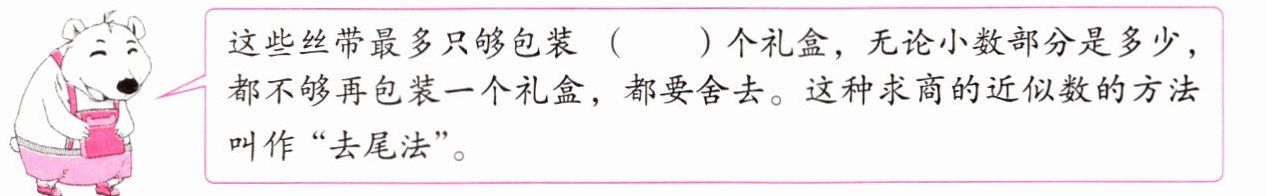 这些丝带最多只够包装（　　）个礼盒，无论小数部分是多少，
都不够再包装一个礼盒，都要舍去。这种求商的近似数的方法
叫作“去尾法”。